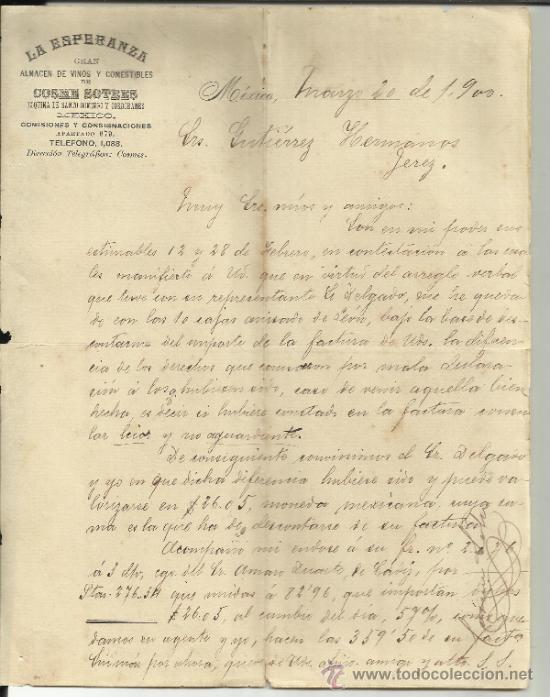 LA ESPERANZA
GRAN
ALMACEN DE VINOS Y COMESTIBLES
DE
COSME SOTRES
ESQUINA 1ª DE SANTO DOMINGO Y CORDOBANES
MEXICO.
COMISIONES Y CONSIGNACIONES
APARTADO 879.
TELEFONO, 1,088.
Dirección Telegráfica: Cosmes.
México, Marzo 20 de 1.900.
Srs. Gutiérrez Hermanos
Jerez.
Muy Srs. mios y amigos:
Son en mi poder sus
estimables 12 y 28 de Febrero, en contestación á las cua
les manifiesto á Uds. que en virtud del arreglo verbal
que tuve con su representante Sr Delgado, me he queda
do con las 10 cajas anisado de León, bajo la base de des
contarme del importe de la factura de Uds. la diferen
cia de los derechos que por mala declara
ción á los q hubieran sido, caso de venir aquella bien
hecha, es decir si hubiere constado en la factura consu
lar licor y no aguardiente.
De consiguiente convinimos el Sr. Delgado
y yo en que dicha diferencia hubiere sido y puede va
lorizarse en $26.05, moneda mexicana, cuya su
ma es la que ha de descontarse de su factura.
Acompaño mi endoso á su fr. nº
á 3 d/v, cgo. del Sr. Amaro Duarte, de Cádiz, por
Ptas. 276.54 que unidas á 82.96, que importan los
$26.05, al cambio del día, 59%, como que
damos su agente y yo, hacen las 359'50 de su factu
Sin más por ahora, quedo de Uds. afmo. amigo y atto. S. S.
todocoleccion
www.todocoleccion.net